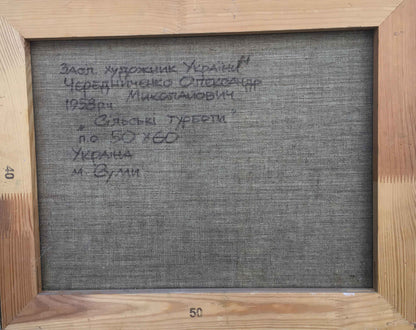 Засл. художник України"
Чередниченко Олександр
Миколайович
1953 р.н.
„Сільські турботи"
п.о. 50 х 60
Україна
м. Суми
40
50